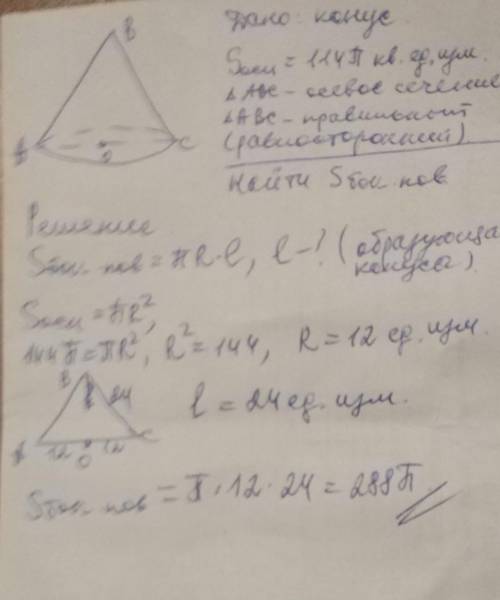 B
Дано: конус.
Sосн = 114π кв. ед. изм.
△ABC - осевое сечение
△ABC - правильный
(равносторонний)
A O C
Найти Sбок. пов
Решение
Sбок. пов = πR·l, l - ? (образующая
конуса)
Sосн = πR²,
144π = πR², R² = 144, R = 12 ед. изм.
B 24
l = 24 ед. изм.
A 12 O 12 C
Sбок пов = π · 12 · 24 = 288π